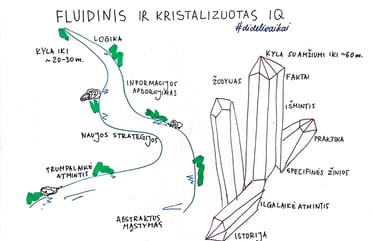 FLUIDINIS IR KRISTALIZUOTAS IQ
#didelivaikai
KYLA IKI
~20-30m.
LOGIKA
INFORMACIJOS
APDOROJIMAS
NAUJOS STRATEGIJOS
TRUMPALAIKĖ
ATMINTIS
ABSTRAKTUS
MĄSTYMAS
KYLA SU AMŽIUMI IKI ~60m.
ŽODYNAS
FAKTAI
IŠMINTIS
PRAKTIKA
SPECIFINĖS ŽINIOS
ILGALAIKĖ ATMINTIS
ISTORIJA